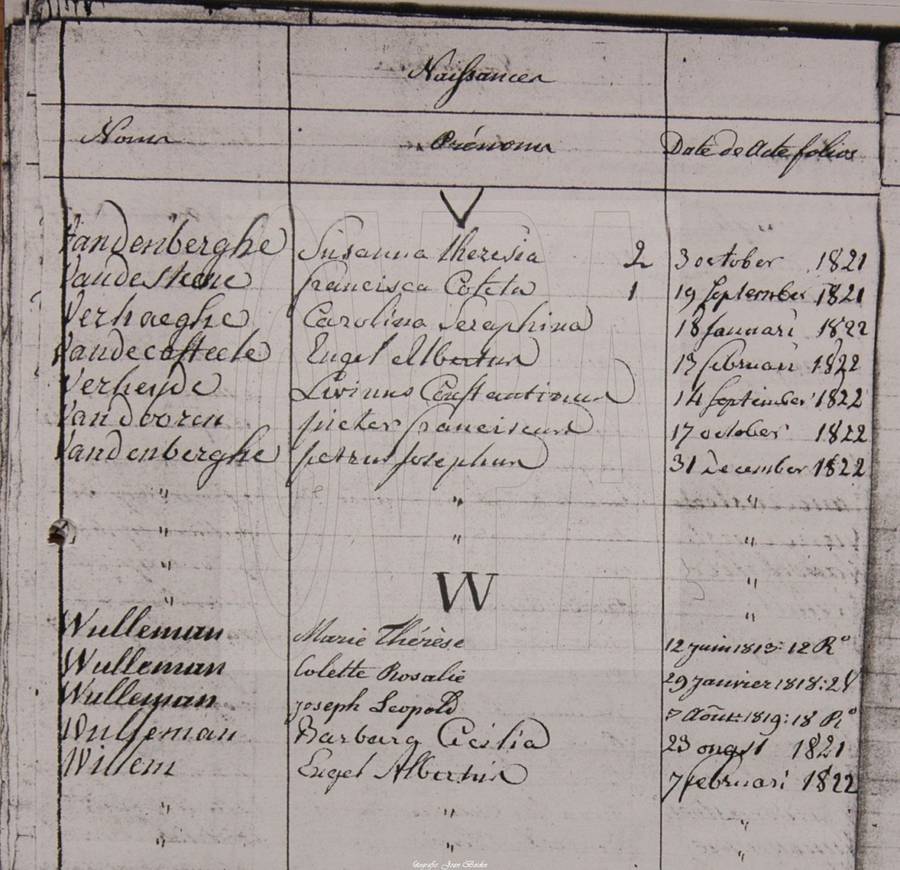 Naissances
Noms Prénoms Date de Acte folios
V
Vandenberghe Susanna theresia 2 3 october 1821
Vandesteene francisca Coleta 1 19 September 1821
Verhaeghe Carolina Seraphina 18 januari 1822
Vandecasteele Engel Albertus 13 februari 1822
Verheyde Livinus Constantinus 14 September 1822
Vandooren pieter franciscus 17 october 1822
Vandenberghe petrus Josephus 31 December 1822
" " "
" " "
" "
" "
W
Wulleman Marie Thérèse 12 juin 1813: 12 R°
Wulleman Colette Rosalie 29 Janvier 1818: 2V
Wulleman joseph Leopold 7 Août: 1819: 18 R°
Wulleman Barbara Cecilia 23 1821
Willem Engel Albertus 7 februari 1822
" " "
" " "